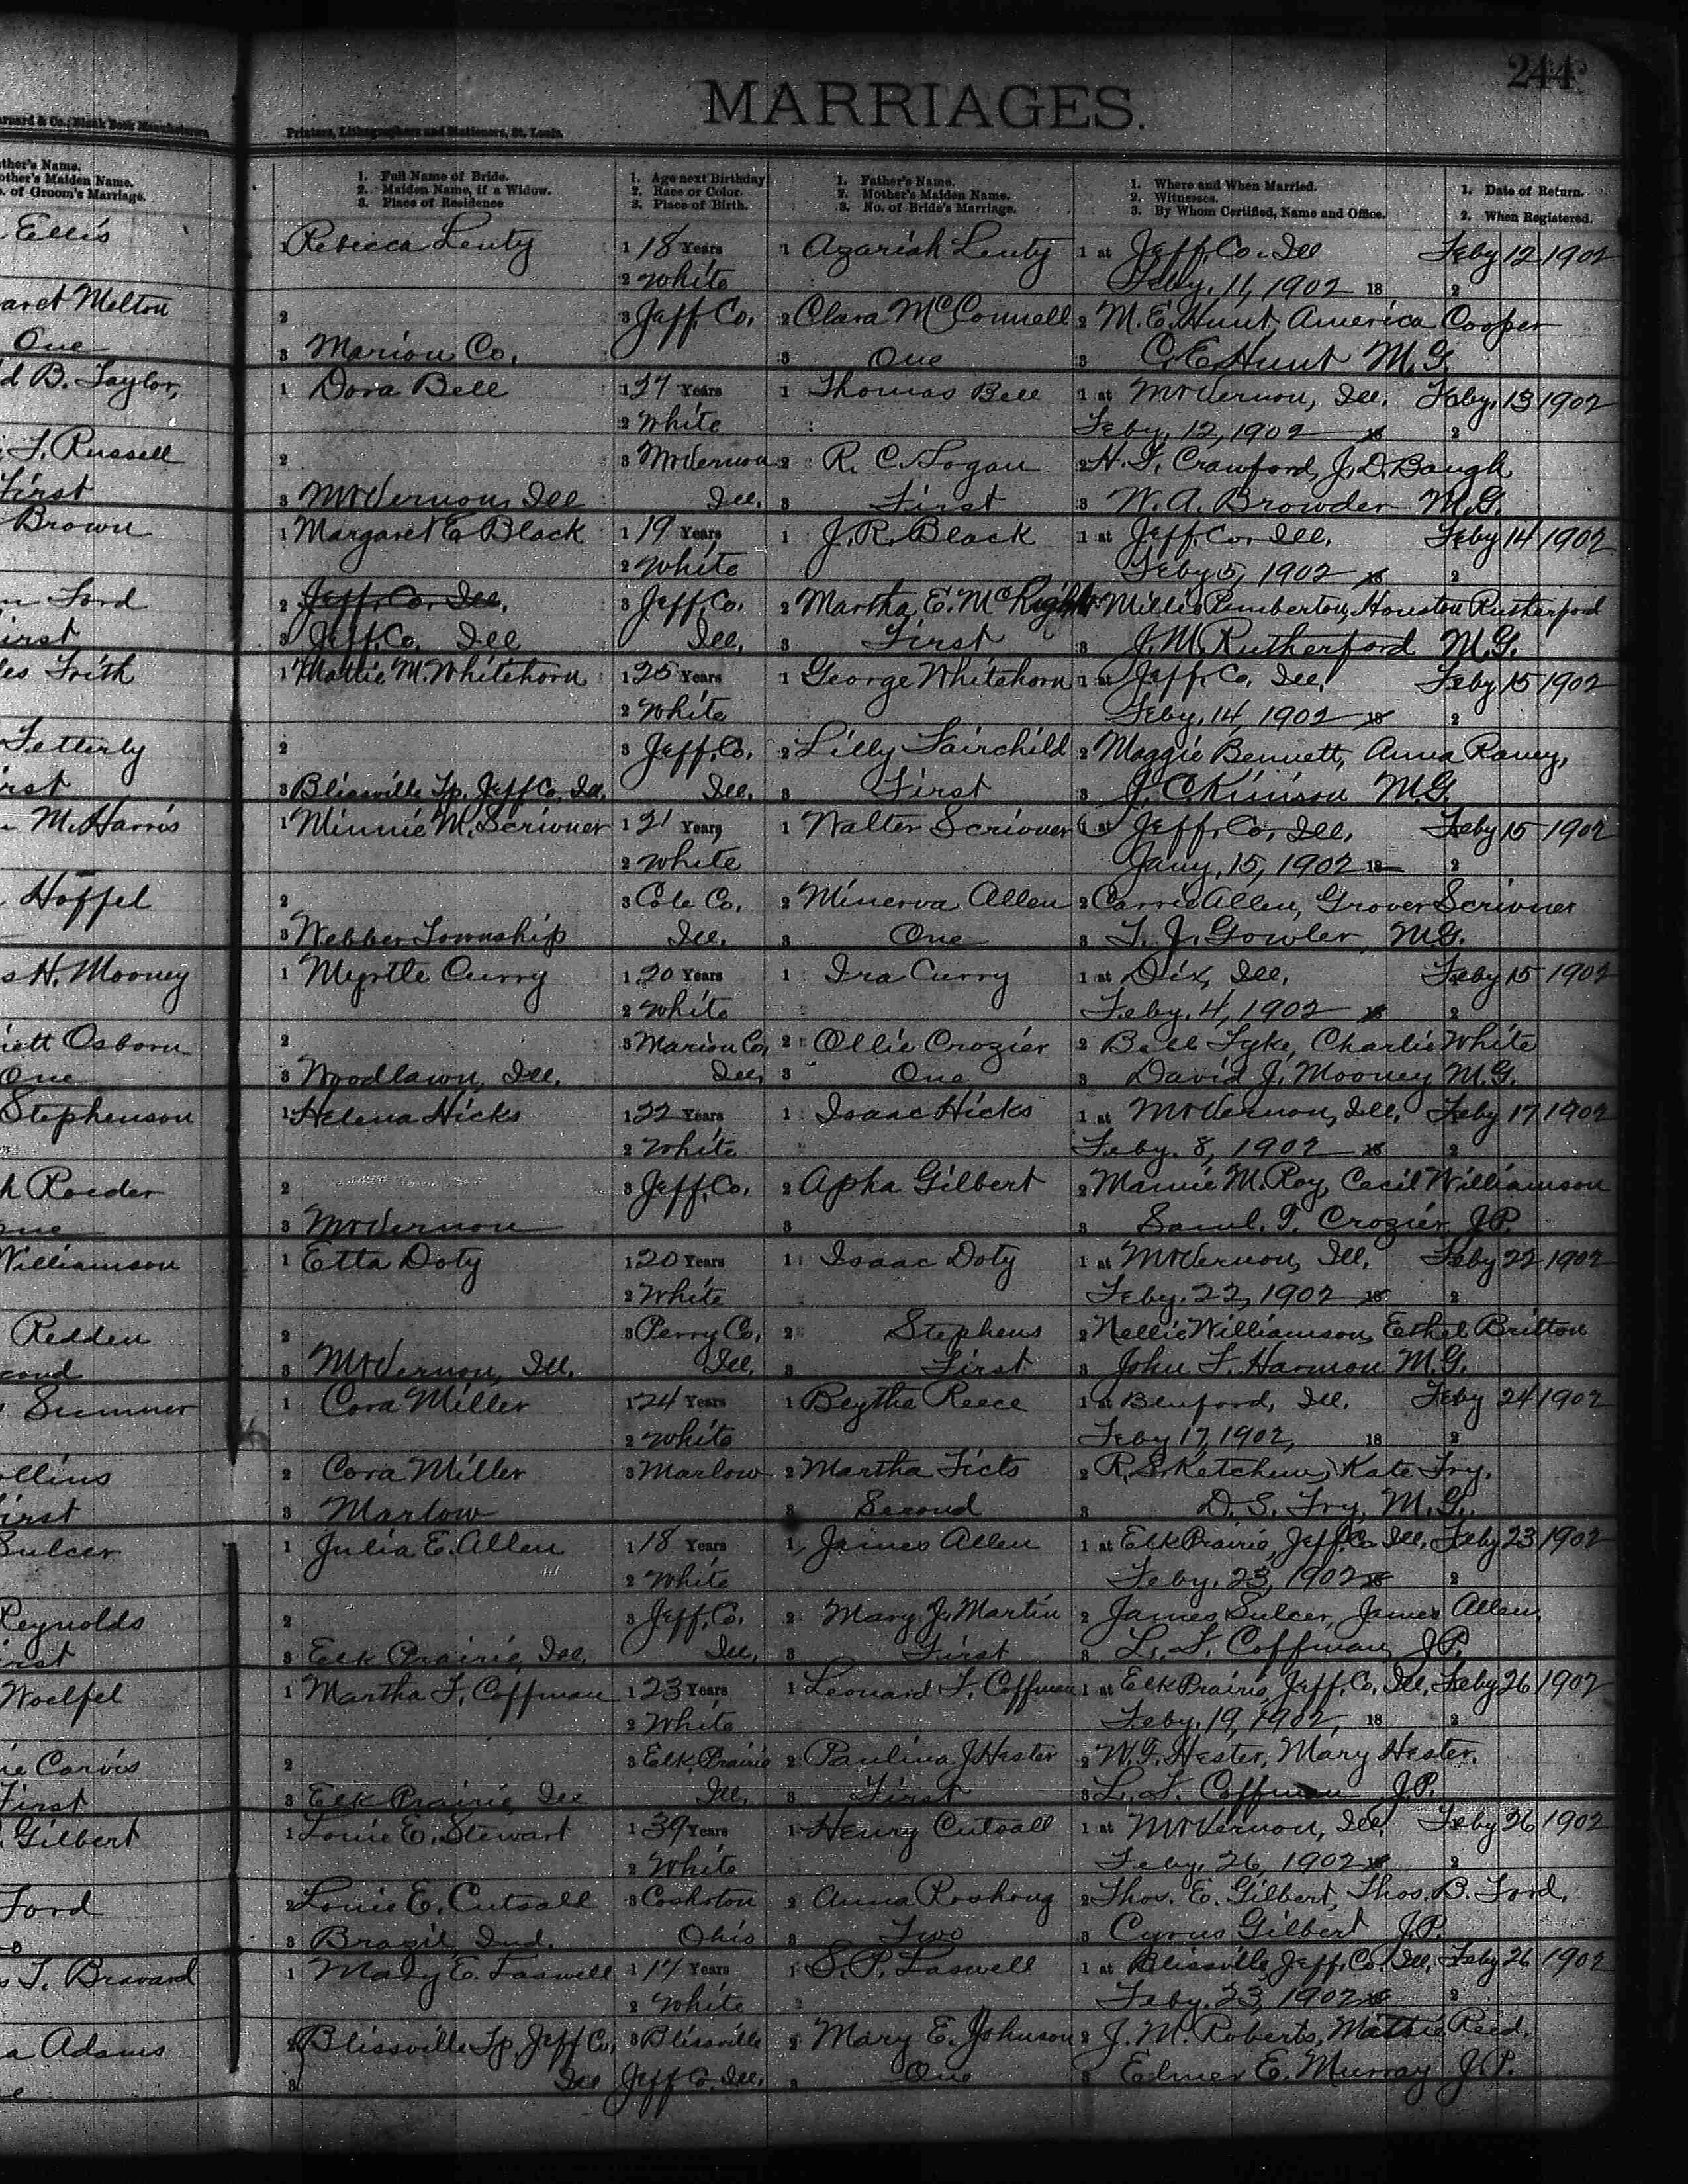 244
MARRIAGES.
Printers, Lithographers and Stationers, St. Louis.
ther's Name.
other's Maiden Name.
. of Groom's Marriage.
1. Full Name of Bride.
2. Maiden Name, if a Widow.
3. Place of Residence
1. Age next Birthday
2. Race or Color.
3. Place of Birth.
1. Father's Name.
2. Mother's Maiden Name.
3. No. of Bride's Marriage.
1. Where and When Married.
2. Witnesses.
3. By Whom Certified, Name and Office.
1. Date of Return.
2. When Registered.
Ellis 1 Rebecca Lenty 1 18 Years 1 Azariah Lenty 1 at Jeff. Co. Ill Feby 12 1902
2 White Feby. 11, 1902 18 2
aret Melton 2 3 Jeff. Co. 2 Clara McConnell 2 M. E. Hunt, America Cooper
One 3 Marion Co. 3 One 3 C. E. Hunt M.G.
d B. Taylor, 1 Dora Bell 1 27 Years 1 Thomas Bell 1 at Mt Vernon, Ill. Feby. 13 1902
2 White Feby. 12, 1902 18 2
T. Russell 2 3 Mt Vernon 2 R. C. Logan 2 H. T. Crawford, J. D. Baugh
First 3 Mt Vernon, Ill Ill. 3 First 3 W. A. Browder M.G.
Brown 1 Margaret E Black 1 19 Years 1 J. R. Black 1 at Jeff. Co. Ill. Feby 14 1902
2 White Feby 5, 1902 18 2
n Ford 2 Jeff. Co. Ill. 3 Jeff. Co. 2 Martha E. Millis Pemberton, Houston Rutherford
irst 3 Jeff. Co. Ill Ill. 3 First 3 J. M. Rutherford M.G.
les Frith 1 Mattie M. Whitehorn 1 25 Years 1 George Whitehorn 1 at Jeff. Co. Ill. Feby 15 1902
2 White Feby. 14, 1902 18 2
Fetterly 2 3 Jeff. Co. 2 Lilly Fairchild 2 Maggie Bennett, Anna Raney,
irst 3 Blissville Tp. Jeff Co. Ill. Ill. 3 First 3 J. C. Kinison M.G.
M. Harris 1 Minnie M. Scrivner 1 21 Years 1 Walter Scrivner 1 at Jeff. Co. Ill. Feby 15 1902
2 White Jany. 15, 1902 18 2
Hoffel 2 3 Cole Co. 2 Minerva Allen 2 Carrie Allen, Grover Scrivner
3 Webber Township Ill. 3 One 3 T. J. Gowler, M.G.
s H. Mooney 1 Myrtle Curry 1 20 Years 1 Ira Curry 1 at Dix, Ill. Feby 15 1902
2 White Feby. 4, 1902 18 2
iett Osborn 2 3 Marion Co. 2 Ollie Crozier 2 Bell Fyke, Charlie White
One 3 Woodlawn, Ill. Ill. 3 One 3 David J. Mooney M.G.
Stephenson 1 Helena Hicks 1 22 Years 1 Isaac Hicks 1 at Mt Vernon, Ill. Feby 17 1902
2 White Feby. 8, 1902 18 2
h Roeder 2 3 Jeff. Co. 2 Apha Gilbert 2 Mamie M. Roy, Cecil Williamson
3 Mt Vernon 3 3 Saml. T. Crozier J.P.
Williamson 1 Etta Doty 1 20 Years 1 Isaac Doty 1 at Mt Vernon, Ill. Feby 22 1902
2 White Feby. 22, 1902 18 2
Redden 2 3 Perry Co. 2 Stephens 2 Nellie Williamson, Ethel Britton
cond 3 Mt Vernon, Ill. Ill. 3 First 3 John F. Harmon M.G.
Sumner 1 Cora Miller 1 24 Years 1 Beythe Reece 1 at Bluford, Ill. Feby 24 1902
2 White Feby 17, 1902, 18 2
ollins 2 Cora Miller 3 Marlow 2 Martha Ficts 2 R. S. Ketchum, Kate Fry.
irst 3 Marlow 3 Second 3 D. S. Fry, M.G.
Sulcer 1 Julia E. Allen 1 18 Years 1 James Allen 1 at Elk Prairie, Jeff. Co Ill. Feby 23 1902
2 White Feby. 23, 1902 18 2
Reynolds 2 3 Jeff. Co. 2 Mary J. Martin 2 James Sulcer, James Allen.
irst 3 Elk Prairie, Ill. Ill. 3 First 3 L. F. Coffman, J.P.
Woelfel 1 Martha F. Coffman 1 23 Years 1 Leonard F. Coffman 1 at Elk Prairie, Jeff. Co. Ill. Feby 26 1902
2 White Feby. 19, 1902, 18 2
ie Carvis 2 3 Elk Prairie 2 Paulina J Hester 2 W. F. Hester, Mary Hester.
First 3 Elk Prairie, Ill Ill. 3 First 3 L. F. Coffman J.P.
Gilbert 1 Louie E. Stewart 1 39 Years 1 Henry Cutsall 1 at Mt Vernon, Ill. Feby 26 1902
2 White Feby. 26, 1902 18 2
Ford 2 Louie E. Cutsall 3 Coshoton 2 Anna Roshong 2 Thos. E. Gilbert, Thos. B. Ford.
3 Brazil, Ind. Ohio 3 Two 3 Cyrus Gilbert J.P.
s T. Bravard 1 Mary E. Laswell 1 17 Years 1 S. P. Laswell 1 at Blissville, Jeff. Co. Ill. Feby 26 1902
2 White 2 Feby. 23, 1902 18 2
a Adams 2 Blissville Tp, Jeff Co, 3 Blissville 2 Mary E. Johnson 2 J. M. Roberts, Mattie Reed.
3 Ill Jeff Co. Ill. 3 One 3 Elmer E. Murray J.P.